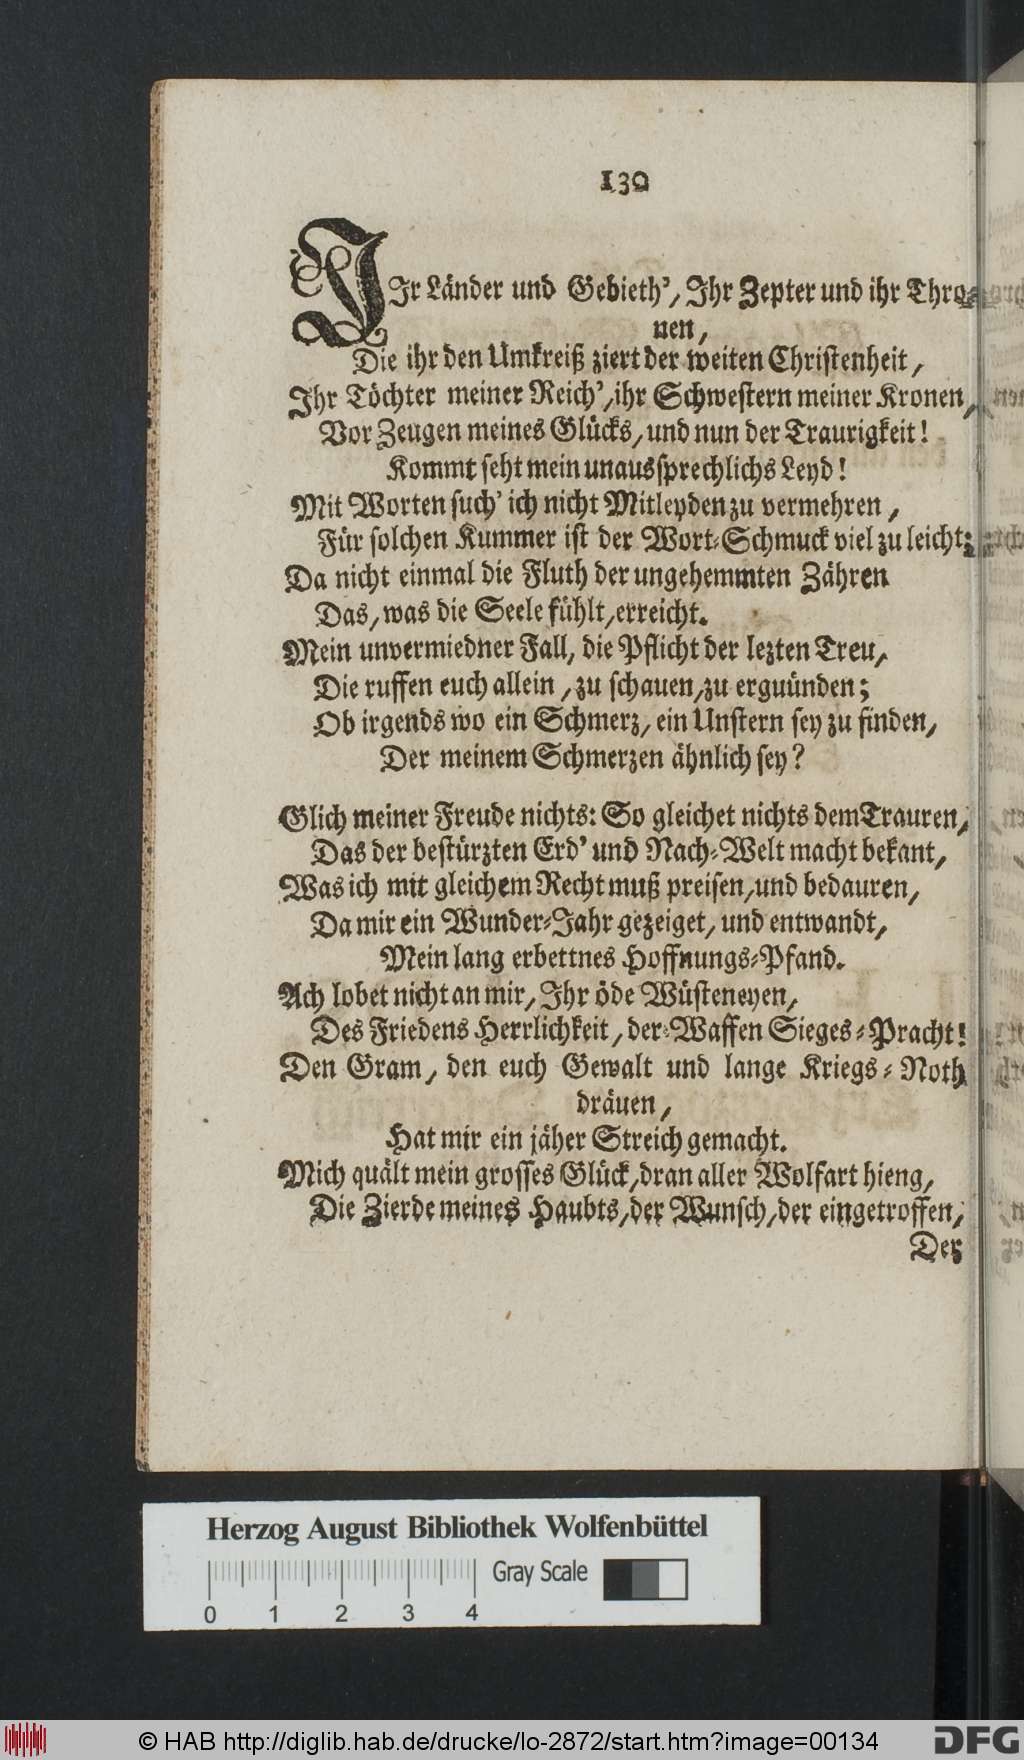 130
JIr Länder und Gebieth’, Ihr Zepter und ihr Thro-
nen,
Die ihr den Umkreiß ziert der weiten Christenheit,
Ihr Töchter meiner Reich’, ihr Schwestern meiner Kronen,
Vor Zeugen meines Glücks, und nun der Traurigkeit!
Kommt seht mein unaussprechlichs Leyd!
Mit Worten such’ ich nicht Mitleyden zu vermehren,
Für solchen Kummer ist der Wort-Schmuck viel zu leicht;
Da nicht einmal die Fluth der ungehemmten Zähren
Das, was die Seele fühlt, erreicht.
Mein unvermiedner Fall, die Pflicht der lezten Treu,
Die ruffen euch allein, zu schauen, zu erguünden;
Ob irgends wo ein Schmerz, ein Unstern sey zu finden,
Der meinem Schmerzen ähnlich sey?
Glich meiner Freude nichts: So gleichet nichts dem Trauren,
Das der bestürzten Erd’ und Nach-Welt macht bekant,
Was ich mit gleichem Recht muß preisen, und bedauren,
Da mir ein Wunder-Jahr gezeiget, und entwandt,
Mein lang erbettnes Hoffnungs-Pfand.
Ach lobet nicht an mir, Ihr öde Wüsteneyen,
Des Friedens Herrlichkeit, der-Waffen Sieges-Pracht!
Den Gram, den euch Gewalt und lange Kriegs-Noth
dräuen,
Hat mir ein jäher Streich gemacht.
Mich quält mein grosses Glück, dran aller Wolfart hieng,
Die Zierde meines Haubts, der Wunsch, der eingetroffen,
Der
Herzog August Bibliothek Wolfenbüttel
Gray Scale
0 1 2 3 4
© HAB http://diglib.hab.de/drucke/lo-2872/start.htm?image=00134
DFG